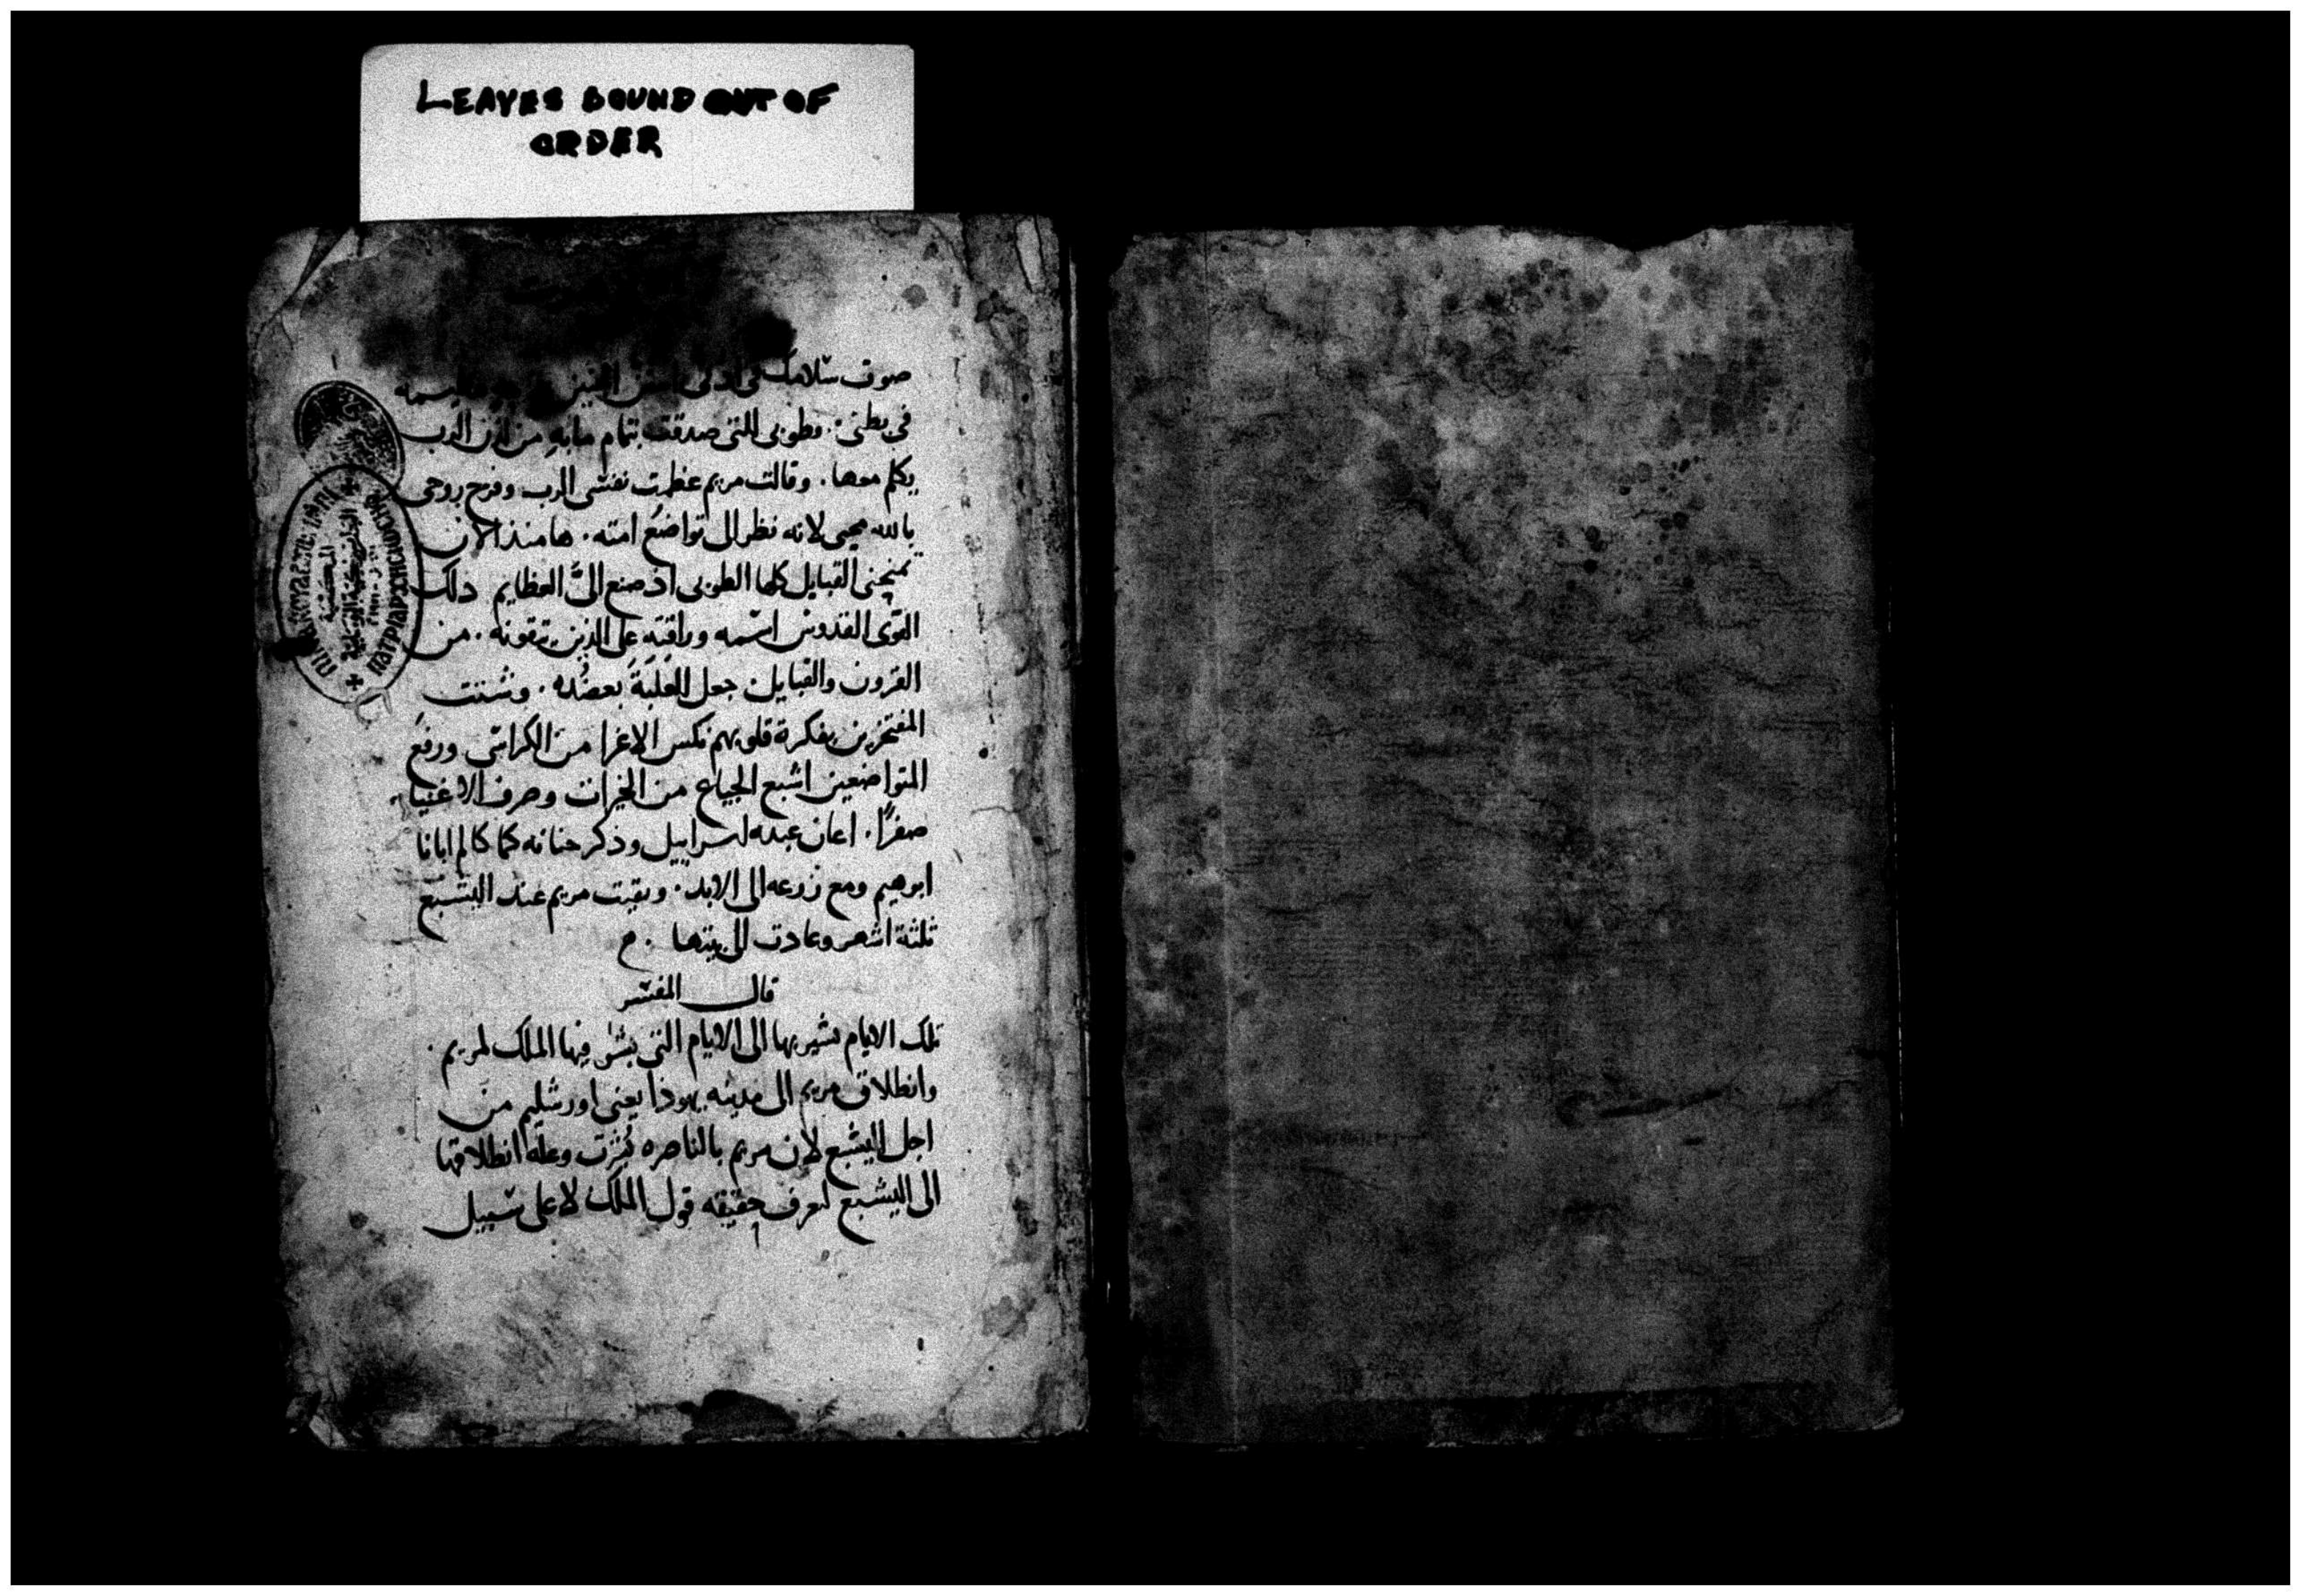 LEAVES BOUND OUT OF
ORDER
صوت سلامك في ادنى
في بطنى. وطوبى للتى صدقت بتمام مابه من الرب
يكلم معها. وقالت مريم عظمت نفسى الرب وفرح روحى
بالله محيى لانه نظر الى تواضع امته. ها منذ الان
تمنحنى القبايل كلها الطوبى اذ صنع الىَّ العظايم ذلك
القوى القدوس اسمه ورافته على الذين يتقونه. من
القرون والقبايل جعل الغلبة بعضده. وشتت
المفتخرين بفكرة قلوبهم نكس الاعزا من الكراسى ورفع
المتواضعين اشبع الجياع من الخيرات وصرف الاغنيا
صفرًا. اعان عبده اسراييل وذكر حنانه كما كالم ابانا
ابرهيم ومع زرعه الى الابد. وبقيت مريم عند اليشبع
ثلثة اشهر وعادت الى بيتها. م
قال المفسر
تلك الايام يشير بها الى الايام التى بشر فيها الملك لمريم.
وانطلاق مريم الى مدينه يهوذا يعنى اورشليم من
اجل اليشبع لان مريم بالناصره بُشرت وعلة انطلاقها
الى اليشبع لتعرف حقيقه قول الملك لا على سبيل